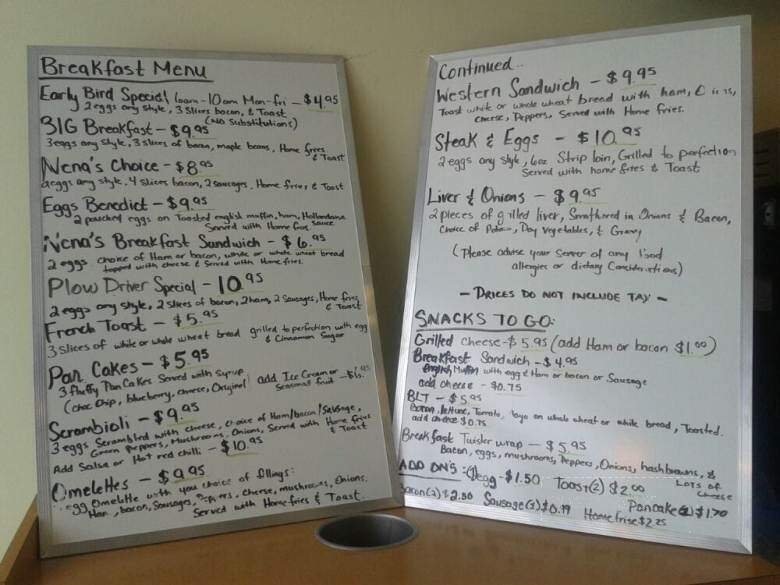 Breakfast Menu
Early Bird Special 6am - 10am Mon-fri - $4.95
2 eggs any style, 3 slices bacon, & Toast
(No Substitutions)
BIG Breakfast - $9.95
3 eggs any style, 3 slices of bacon, maple beans, Home fries
& Toast
Nena's Choice - $8.95
2 eggs any style, 4 slices bacon, 2 sausages, Home fries & Toast
Eggs Benedict - $9.95
2 poached eggs on Toasted english muffin, ham, Hollandaise
Served with Home fries sauce
Nena's Breakfast Sandwich - $6.95
2 eggs choice of Ham or bacon, white or whole wheat bread
topped with cheese & Served with Home fries.
Plow Driver Special - 10.95
2 eggs any style, 2 slices of bacon, 2 ham, 2 Sausages, Home fries
& Toast
French Toast - $5.95
3 slices of white or whole wheat bread grilled to perfection with egg
& Cinnamon Sugar
Pan Cakes - $5.95
3 fluffy Pan Cakes Served with Syrup
(choc chip, blueberry, cheese, Original) add Ice Cream or
Seasonal fruit
Scrambioli - $9.95
3 eggs Scrambled with cheese, choice of Ham/bacon/Sausage,
Green Peppers, Mushrooms, Onions, Served with Home fries
& Toast
Add Salsa or Hot red chilli - $10.95
Omelettes - $9.95
egg Omelette with you choice of fillings:
Ham, bacon, Sausages, Peppers, cheese, mushrooms, Onions.
Served with Home fries & Toast.
Continued..
Western Sandwich - $9.95
Toast white or whole wheat bread with ham,
cheese, Peppers, Served with Home fries.
Steak & Eggs - $10.95
2 eggs any style, 6oz Strip loin, Grilled to perfection
Served with home fries & Toast
Liver & Onions - $9.95
2 pieces of grilled liver, Smothered in Onions & Bacon,
Choice of Potato, Day Vegetables, & Gravy
(Please advise your Server of any food
allergies or dietary Considerations)
- PRICES DO NOT INCLUDE TAX -
SNACKS TO GO:
Grilled cheese - $5.95 (add Ham or bacon $1.00)
Breakfast Sandwich - $4.95
English Muffin with egg & Ham or bacon or Sausage
add cheese - $0.75
BLT - $5.95
Bacon, lettuce, Tomato, Mayo on whole wheat or white bread, Toasted.
add cheese $0.75
Breakfast Twister wrap - $5.95
Bacon, eggs, mushrooms, Peppers, Onions, hashbrowns, &
LOTS OF
Cheese
ADD ON'S: (1)egg - $1.50 Toast(2) $2.00
Bacon(3) $2.50 Sausage(3) Pancake(1) $1.70
Homefries $2.25